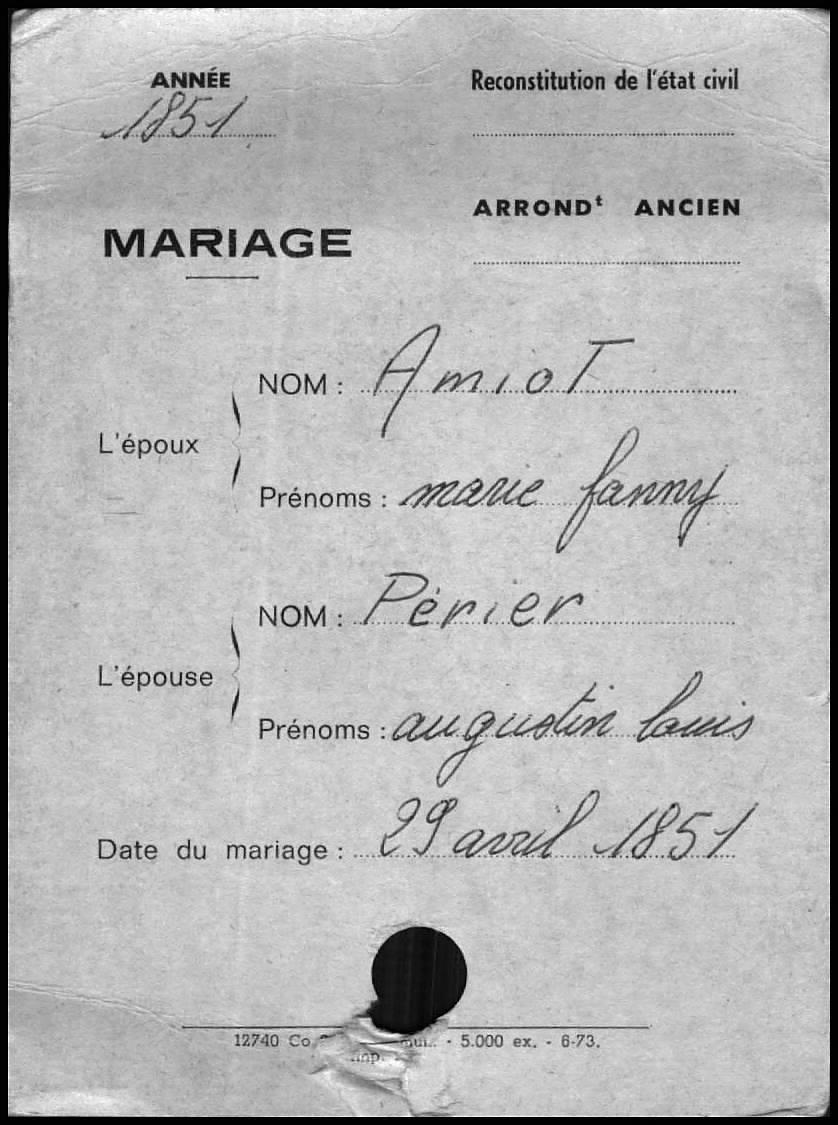 ANNÉE
1851
Reconstitution de l'état civil
ARRONDt ANCIEN
MARIAGE
L'époux
NOM : AmioT
Prénoms : marie fanny
L'épouse
NOM : Périer
Prénoms : augustin louis
Date du mariage : 29 avril 1851
12740 Co - 5.000 ex. - 6-73.